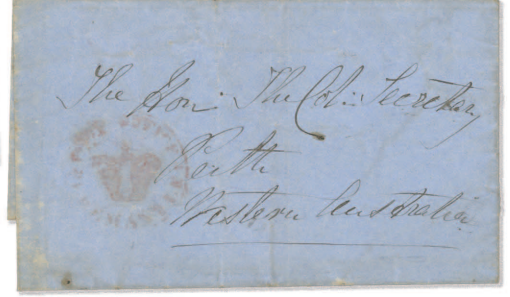 The Hon: The Col: Secretary
Perth
Western Australia